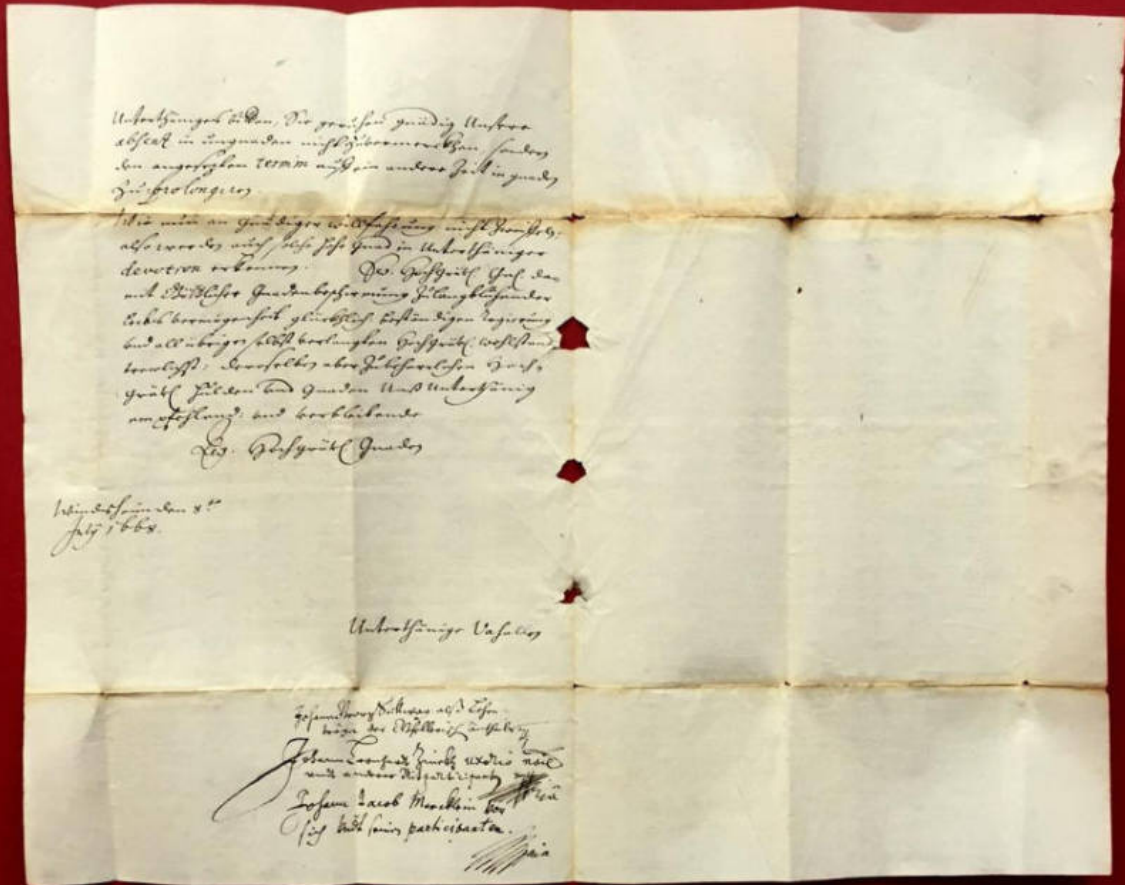 Unterthäniges bitten, Sie geruhen gnädig Unsere
absentz in ungnaden nicht zuvermerckhen sondern
den angesetzten termin auff ein andere Zeit in gnaden
zu prolongiren.
Wie nun an gnädiger willfahrung nicht zweifeln,
also werden auch solche hohe gnad in Unterthäniger
devotion erkennen. Ew. Hochgräfl. Gnd. den
mit Göttlicher Gnadenbeschirmung zu langblühender
leibs vermögenheit glücklich beständigen regierung
und all übrigen selbst verlangten Hochgräfl. wohlstand
derselben aber zu beharrlichen Hoch-
gräfl. Hulden und Gnaden Unß Unterthänig
empfehlend, und verbleibende
Ew. Hochgräfl. Gnaden
Windsheim den 8ten
July 1668.
Unterthänige Vasallen
Johann Georg alß Lehen-
träger der
Johann Leonhardt uxorio noie
undt anderer Mitparticipanten
Johann Jacob Mercklein vor
sich undt seine participanten.